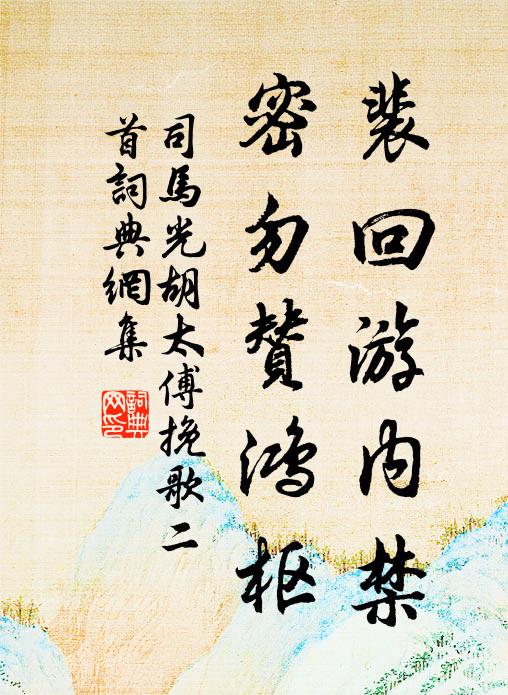 裴回游内禁
密勿贊鴻枢
司馬光胡太傅挽歌二
首詞典網集
詞典网印